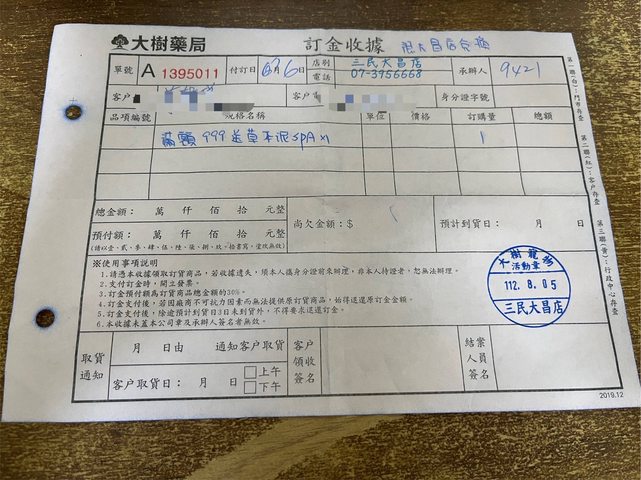 大樹藥局 訂金收據 限大昌店兌換
單號 A 1395011 付訂日 8月6日 店別 三民大昌店 承辦人 9421
電話 07-3956668
客戶 客戶 身分證字號
品項編號 規格名稱 單位 價格 訂購量 總額
滿額999送草本泥SPA x1 1
總金額： 萬 仟 佰 拾 元整 尚欠金額：$ 預計到貨日： 月 日
預付額： 萬 仟 佰 拾 元整
(請以壹、貳、參、肆、伍、陸、柒、捌、玖、拾書寫，塗改無效)
※使用事項說明
1.請憑本收據領取訂貨商品，若收據遺失，須本人攜身分證前來辦理，非本人持證者，恕無法辦理。
2.支付訂金時，開立發票。
3.訂金預付額為訂貨商品總金額的30%。
4.訂金支付後，若因廠商不可抗力因素而無法提供原訂貨商品，始得退還原訂金金額。
5.訂金支付後，除逾預計到貨日3日未到貨外，不得要求退還訂金。
6.本收據未蓋本公司章及承辦人簽名者無效。
大樹藥局
活動章
112. 8. 05
三民大昌店
取貨通知 月 日由 通知客戶取貨
客戶取貨日： 月 日 上午 下午
客戶領收簽名
結案人員簽名
2019.12
第一聯(白)：門市存查 第二聯(紅)：客戶存查 第三聯(黃)：行政中心存查